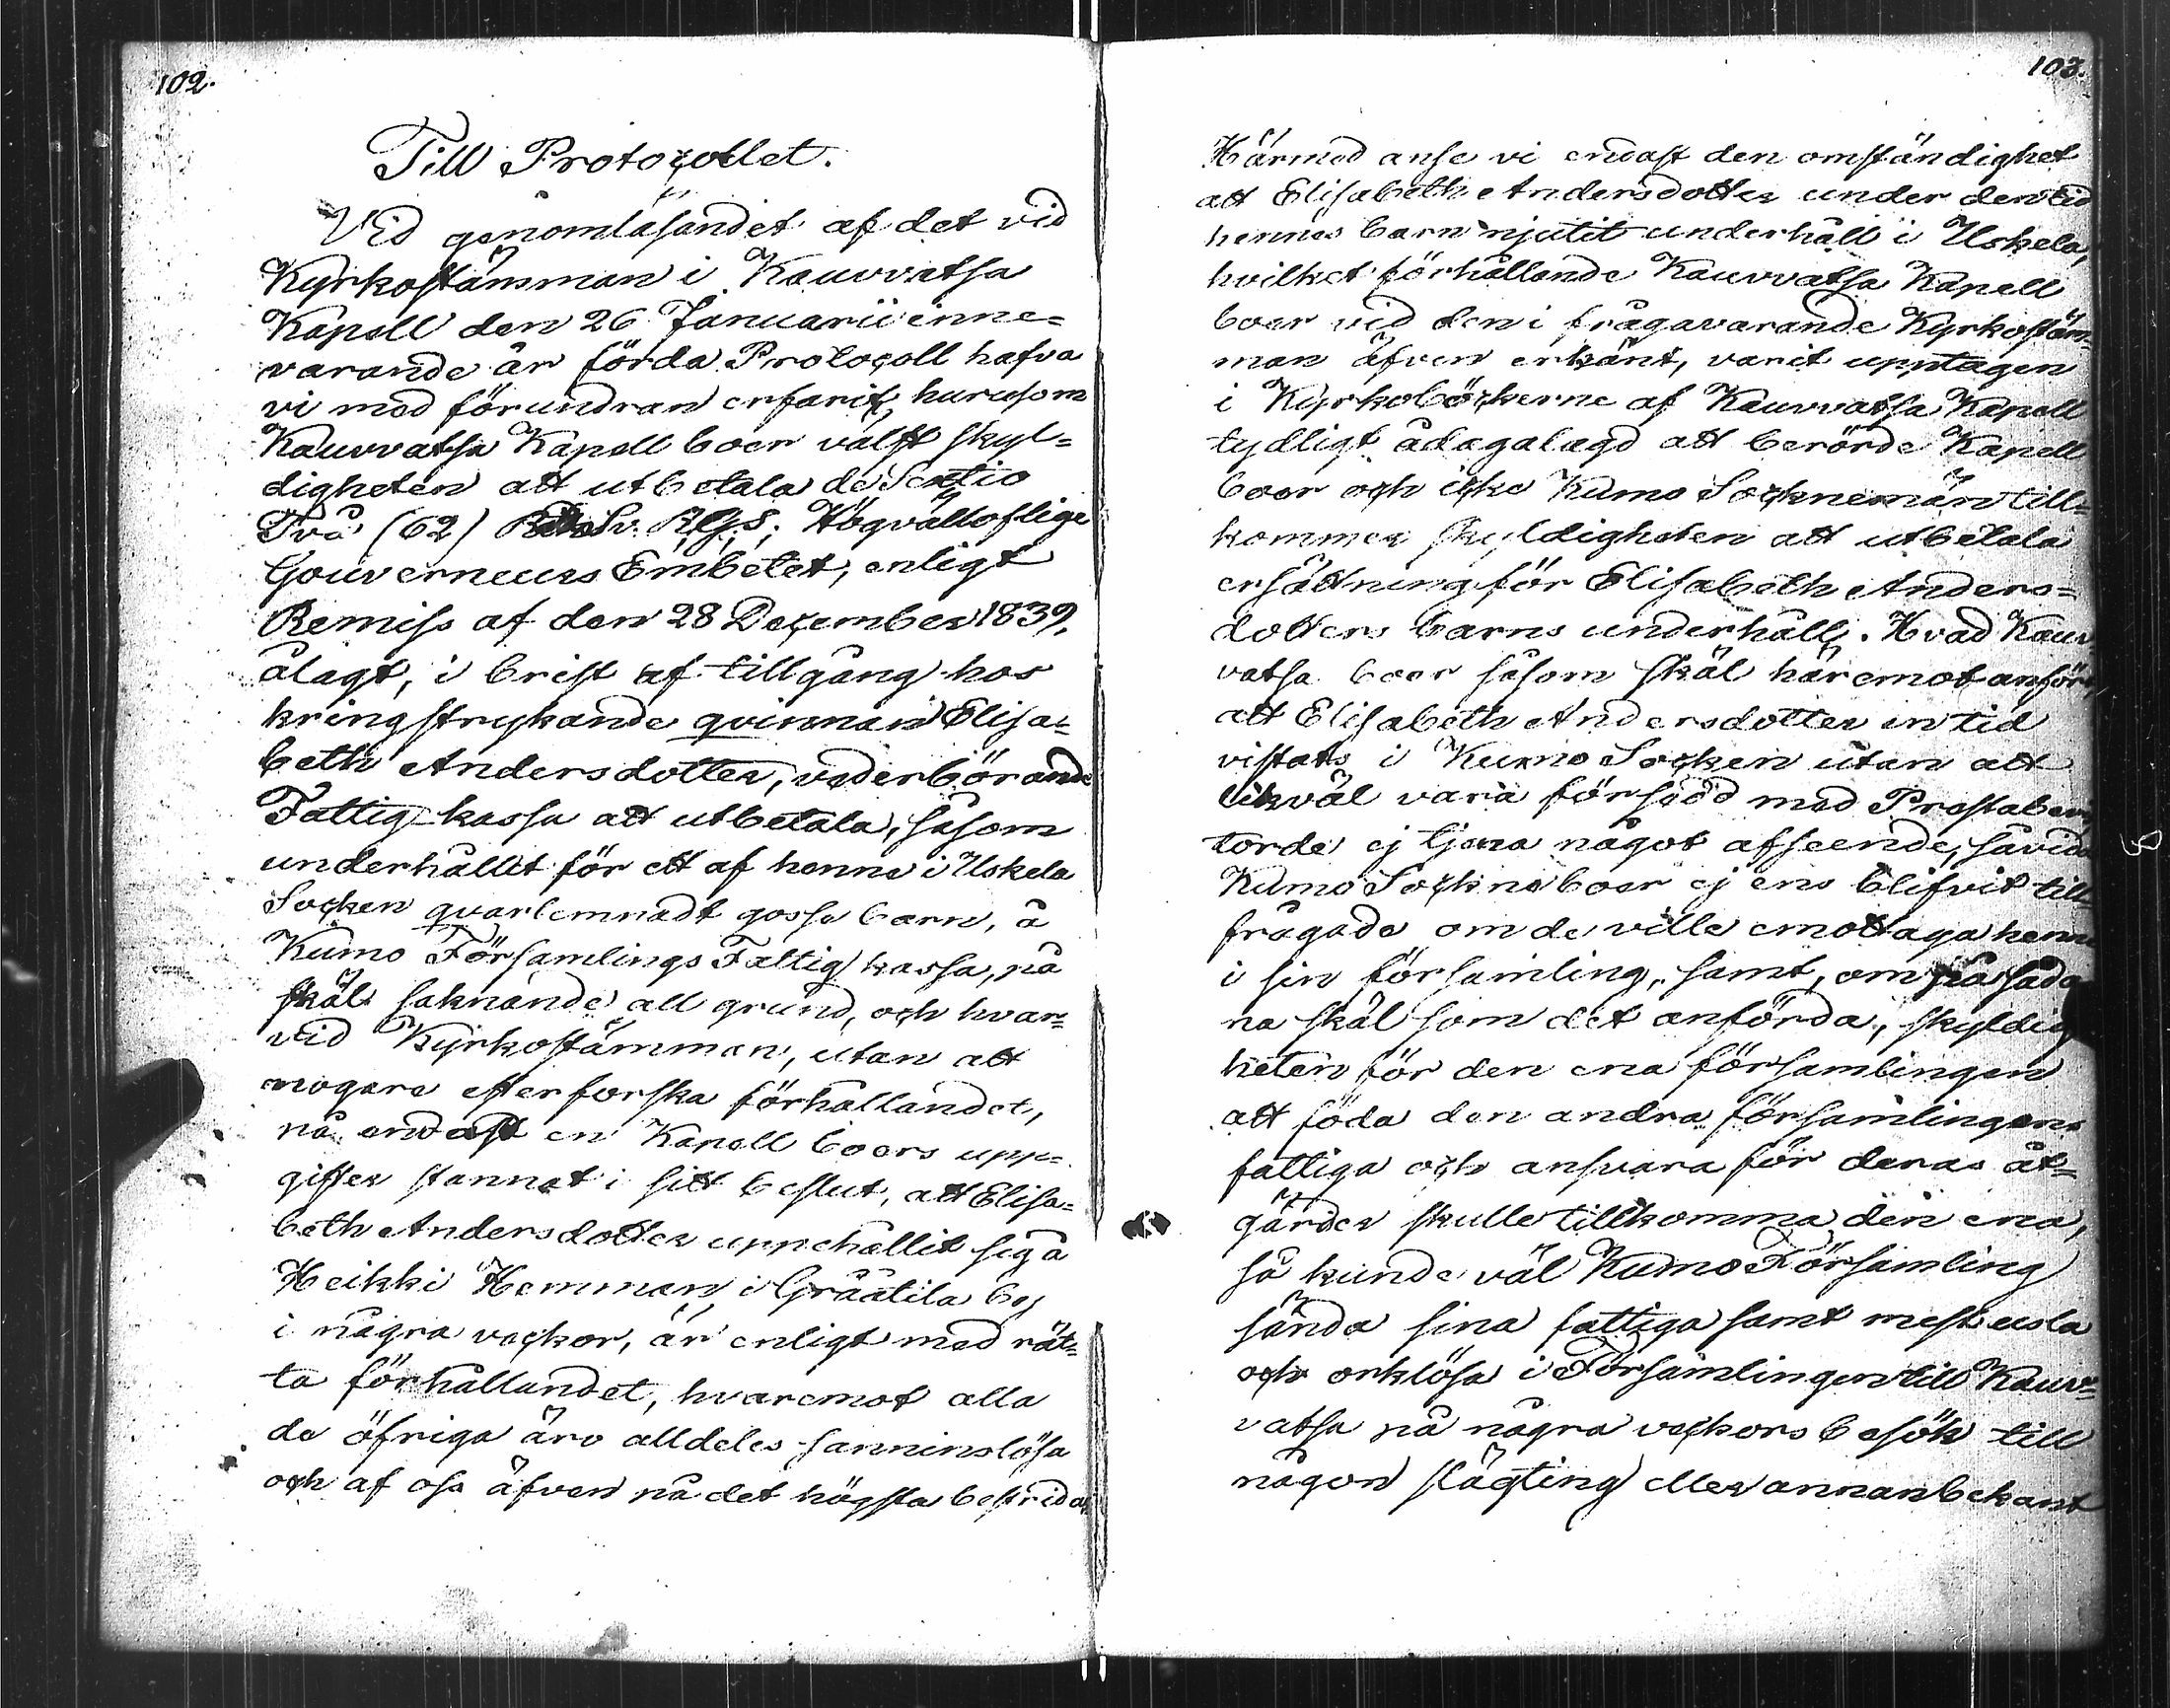 102.
Till Protocollet.
Vid genomläsandet af det vid
Kyrkostämman i Kauvvatsa
Kapell den 26 Januarii inne=
varande år förda Protocoll hafva
vi med förundran erfarit, hurusom
Kauvvatsa Kapell boer välft skyl=
digheten att utbetala de Sextio
Två (62) Sv. RGS; Högvälloflige
Gouverneurs Embetet, enligt
Remiss af den 28 December 1839,
ålagt, i brist af tillgång hos
kringstrykande qvinnan Elisa=
beth Andersdotter, vederbörande
Fattig-kassa att utbetala, såsom
underhållit för ett af henne i Uskela
Socken qvarlemnadt gosse barn, å
Kumo Församlings Fattig kassa, på
skäl saknande all grund, och hvar=
vid Kyrkostämman, utan att
nogare efterforska förhållandet,
på endast en Kapell boers upp=
gifter stannat i sitt beslut, att Elisa=
beth Andersdotter uppehållit sig å
Heikki Hemman i Gråätila by
i några veckor, är enligt med rät=
ta förhållandet, hvaremot alla
de öfriga äro alldeles sanninslösa
och af oss äfven på det högsta bestridas
103.
Härmed anse vi endast den omständighet
att Elisabeth Andersdotter under den tid
hennes barn njutit underhåll i Uskela,
hvilket förhållande Kauvvatsa Kapell
boer vid den i frågavarande Kyrkostäm=
man äfven erkänt, varit upptagen
i Kyrkoböckerne af Kauvvatsa Kapell
tydligt ådagalagd att berörde Kapell
boer och icke Kumo Socknemän till=
kommer skyldigheten att utbetala
ersättning för Elisabeth Anders=
dotters barns underhåll. Hvad Kauv
vatsa boer såsom skäl häremot anfört,
att Elisabeth Andersdotter en tid
vistats i Kumo Socken utan att
likväl vara försedd med Prestabevis
torde ej tjena något afseende, såvida
Kumo Sockneboer ej ens blifvit till=
frågade om de ville emottaga henne
i sin församling, samt, om på såda
na skäl som det anförda, skyldig
heten för den ena församlingen
att föda den andra församlingens
fattiga och ansvara för deras åt=
gärder skulle tillkomma den ena,
så kunde väl Kumo Församling
sända sina fattiga samt mest usla
och orklösa i Församlingen till Kauv=
vatsa på några veckors besök till
någon slägting eller annan bekant